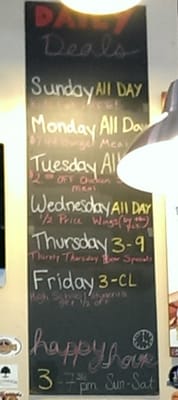 DAILY
Deals
Sunday All DAY
Monday All Day
Meal
Tuesday All
$2 OFF Chicken
meal
Wednesday All DAY
1/2 Price Wings (by the
Thursday 3-9
Thirsty Thursday Beer Specials
Friday 3-CL
High School Students
get 1/2 off
happy hour
3-7 pm Sun-Sat